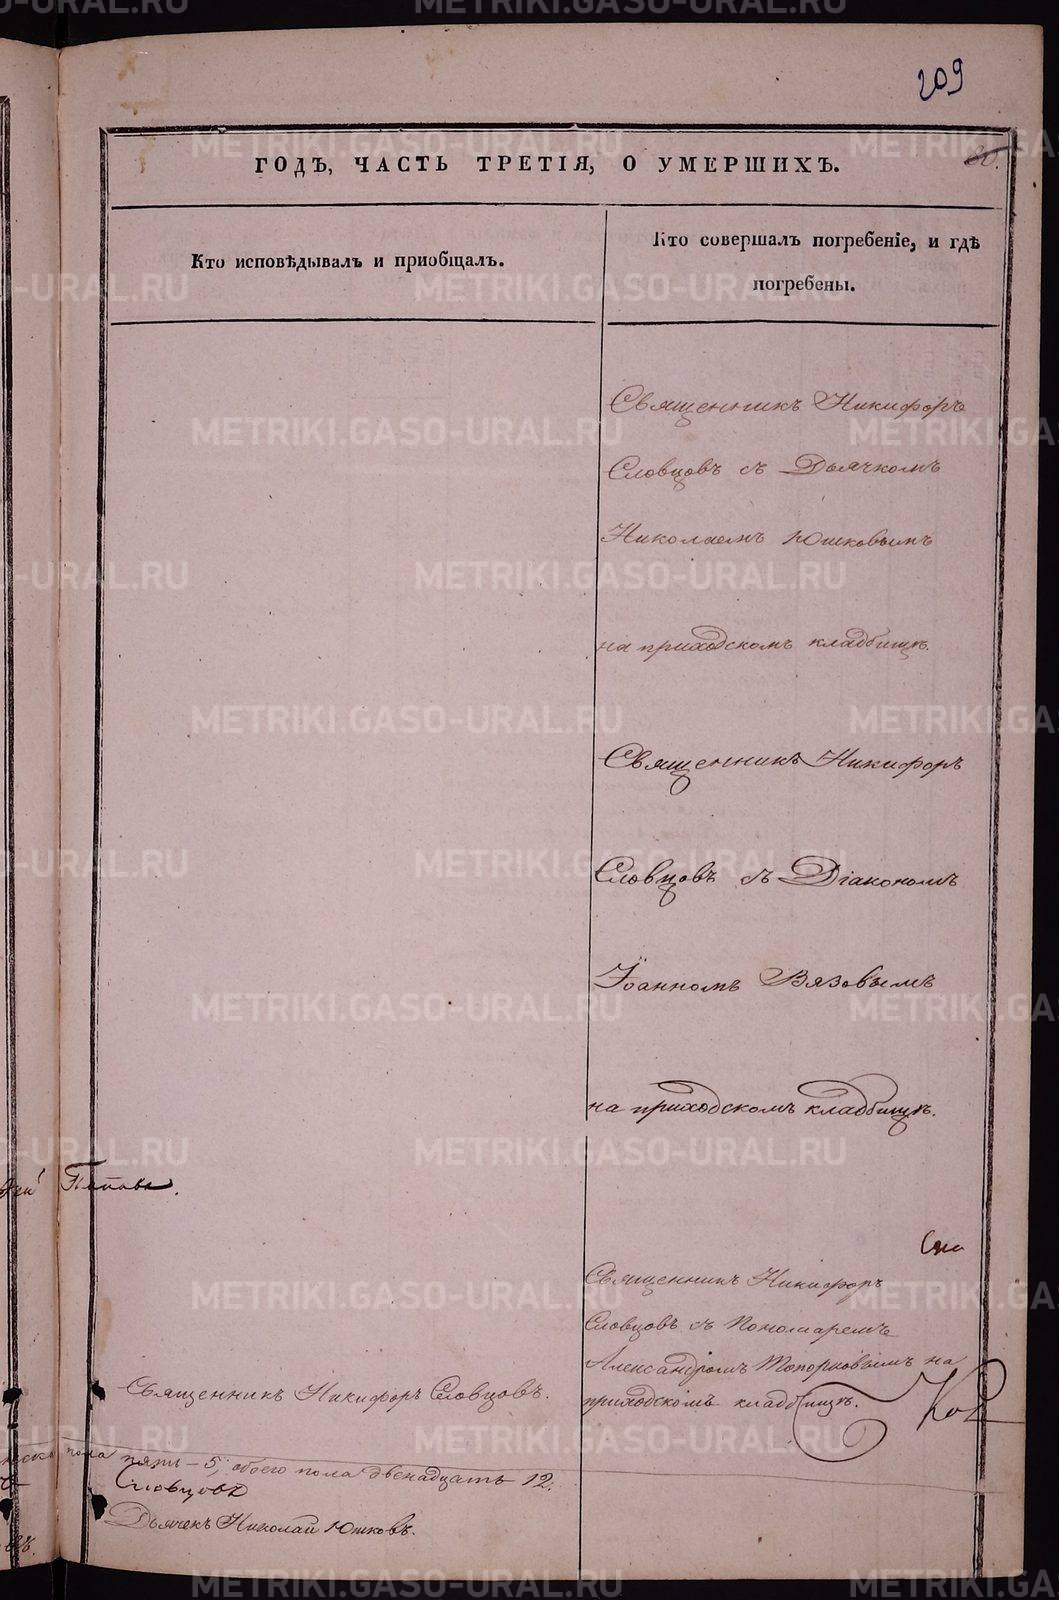 209
ГОДЪ, ЧАСТЬ ТРЕТІЯ, О УМЕРШИХЪ.
20.
Кто исповѣдывалъ и пріобщалъ.
Кто совершалъ погребеніе, и гдѣ
погребены.
Священникъ Никифоръ
Словцовъ съ Дьячкомъ
Николаемъ Юшковымъ
на приходскомъ кладбищѣ.
Священникъ Никифоръ
Словцовъ съ Діакономъ
Іоанномъ Вязовымъ
на приходскомъ кладбищѣ.
Попова.
Священникъ Никифоръ
Словцовъ съ Пономаремъ
Александромъ Топорковымъ на
приходскомъ кладбищѣ.
Священникъ Никифоръ Словцовъ.
пола пять - 5, обоего пола двенадцать 12.
Словцовъ
Дьячекъ Николай Юшковъ.
METRIKI.GASO-URAL.RU